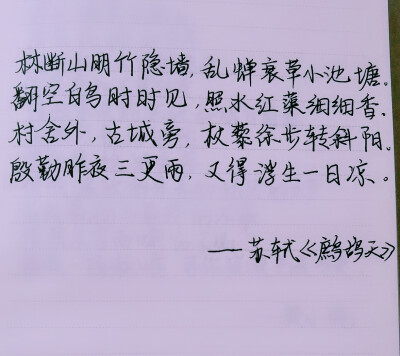 林断山明竹隐墙，乱蝉衰草小池塘。
翻空白鸟时时见，照水红蕖细细香。
村舍外，古城旁，杖藜徐步转斜阳。
殷勤昨夜三更雨，又得浮生一日凉。
——苏轼《鹧鸪天》